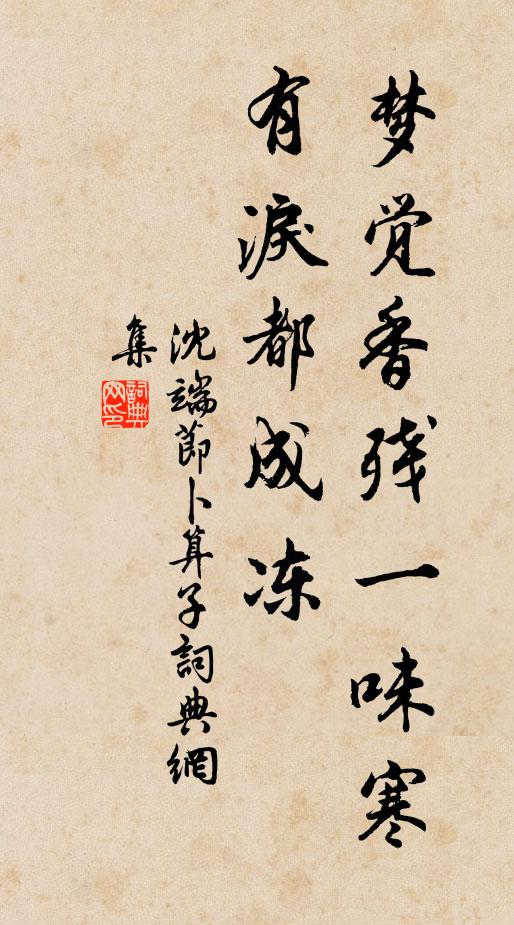 梦觉香残一味寒
有泪都成冻
沈端节卜算子詞典網
集
詞典网印